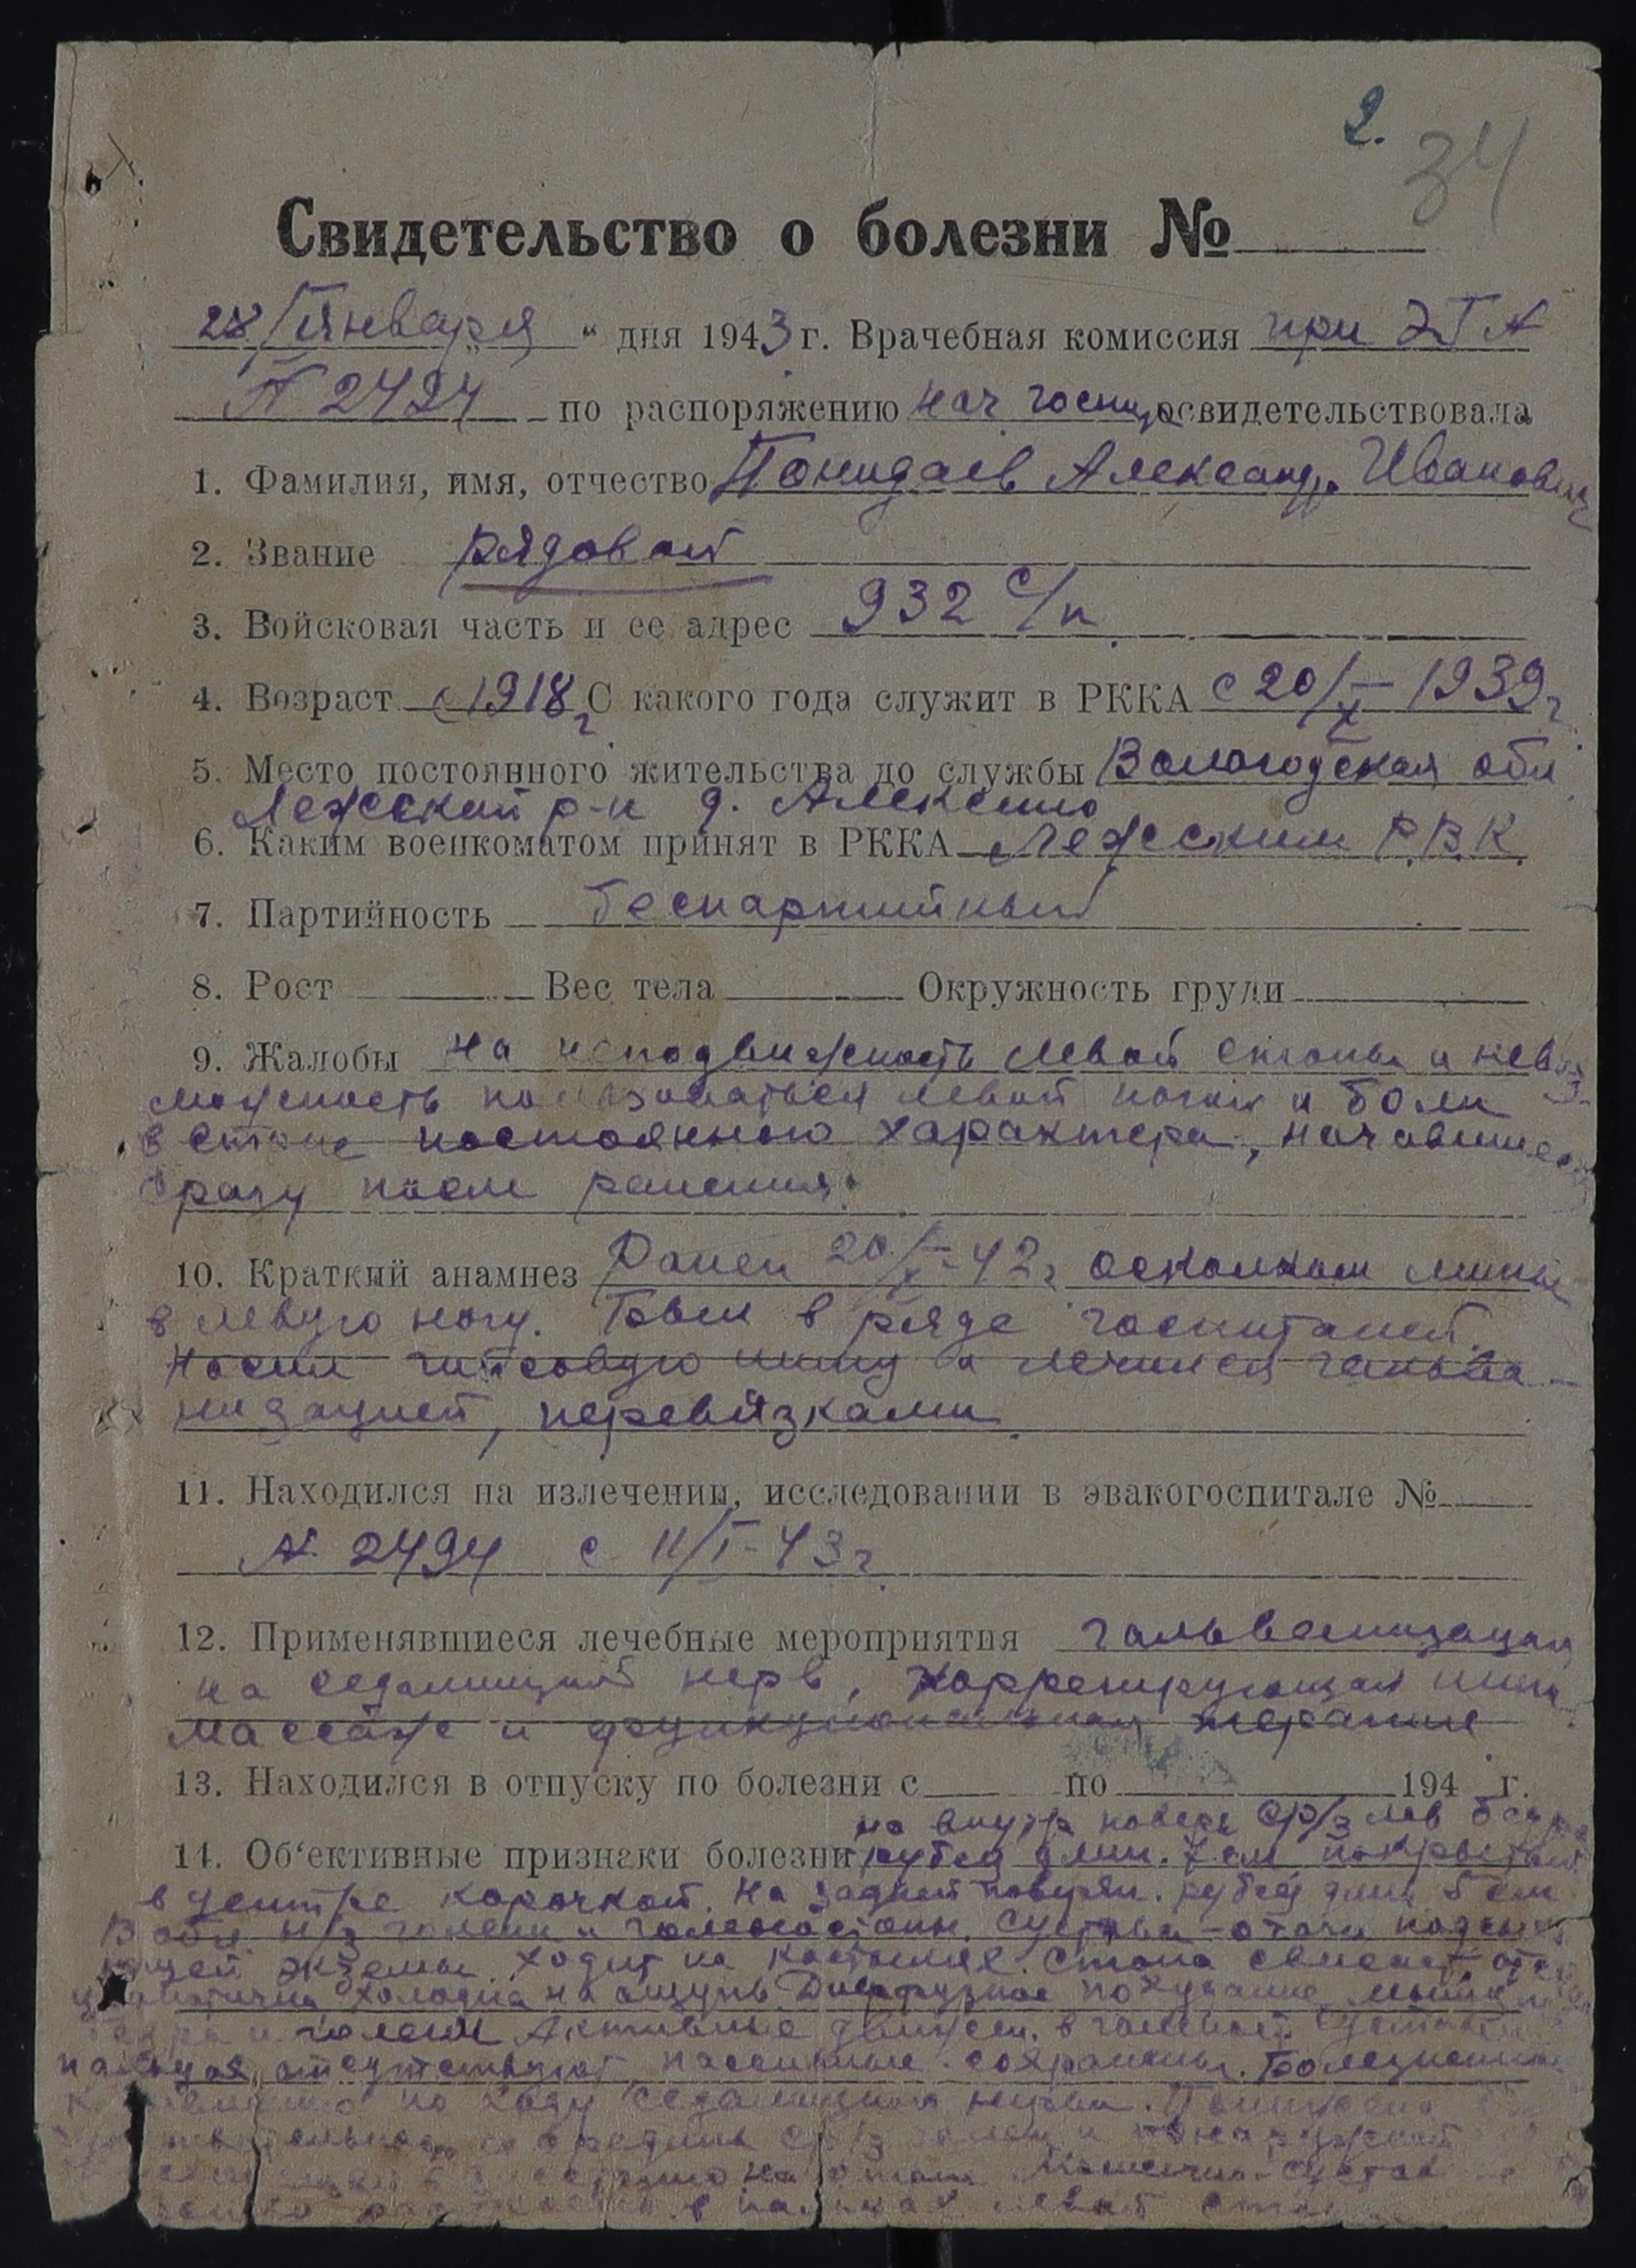 2.
34
Свидетельство о болезни №
28/января " дня 1943 г. Врачебная комиссия при ЭГ №
№ 2494 по распоряжению нач госпит освидетельствовала
1. Фамилия, имя, отчество Понидаев Александр Иванович
2. Звание рядовой
3. Войсковая часть и ее адрес 932 с/п
4. Возраст с 1918 г С какого года служит в РККА с 20/X-1939 г
5. Место постоянного жительства до службы Вологодская обл
Лежский р-н д. Алексино
6. Каким военкоматом принят в РККА Лежским Р.В.К.
7. Партийность беспартийный
8. Рост Вес тела Окружность груди
9. Жалобы На неподвижность левой стопы и невоз
можность пользоваться левой ногой и боли
в стопе постоянного характера, начавшиеся
сразу после ранения.
10. Краткий анамнез Ранен 20/X-42 г осколком мины
в левую ногу. Был в ряде госпиталей.
Носил гипсовую шину и лечился гальва-
низацией, перевязками.
11. Находился на излечении, исследовании в эвакогоспитале №
№ 2494 с 11/I-43 г
12. Применявшиеся лечебные мероприятия гальванизация
на седалищный нерв, корригирующая шина
массаж и функциональная терапия
13. Находился в отпуску по болезни с по 194 г.
на внутр поверх ср/з лев бедра
14. Об'ективные признаки болезни рубец длин. см покрытый
в центре корочкой. На задней поверхн. рубец длин 5 см
В обл. н/з голени и голеностопн. сустава - очаги
экземы. Ходит на костылях. Стопа свисает,
цианотична холодна на ощупь. Диффузное похудание мышц
бедра и голени Активные движен. в голеност. суставе
пальцах отсутствуют, пассивные сохранены. Болезненность
по ходу седалищного нерва. Понижена
ср/з голени и
на стопе Мышечно-сустав
в пальцах левой